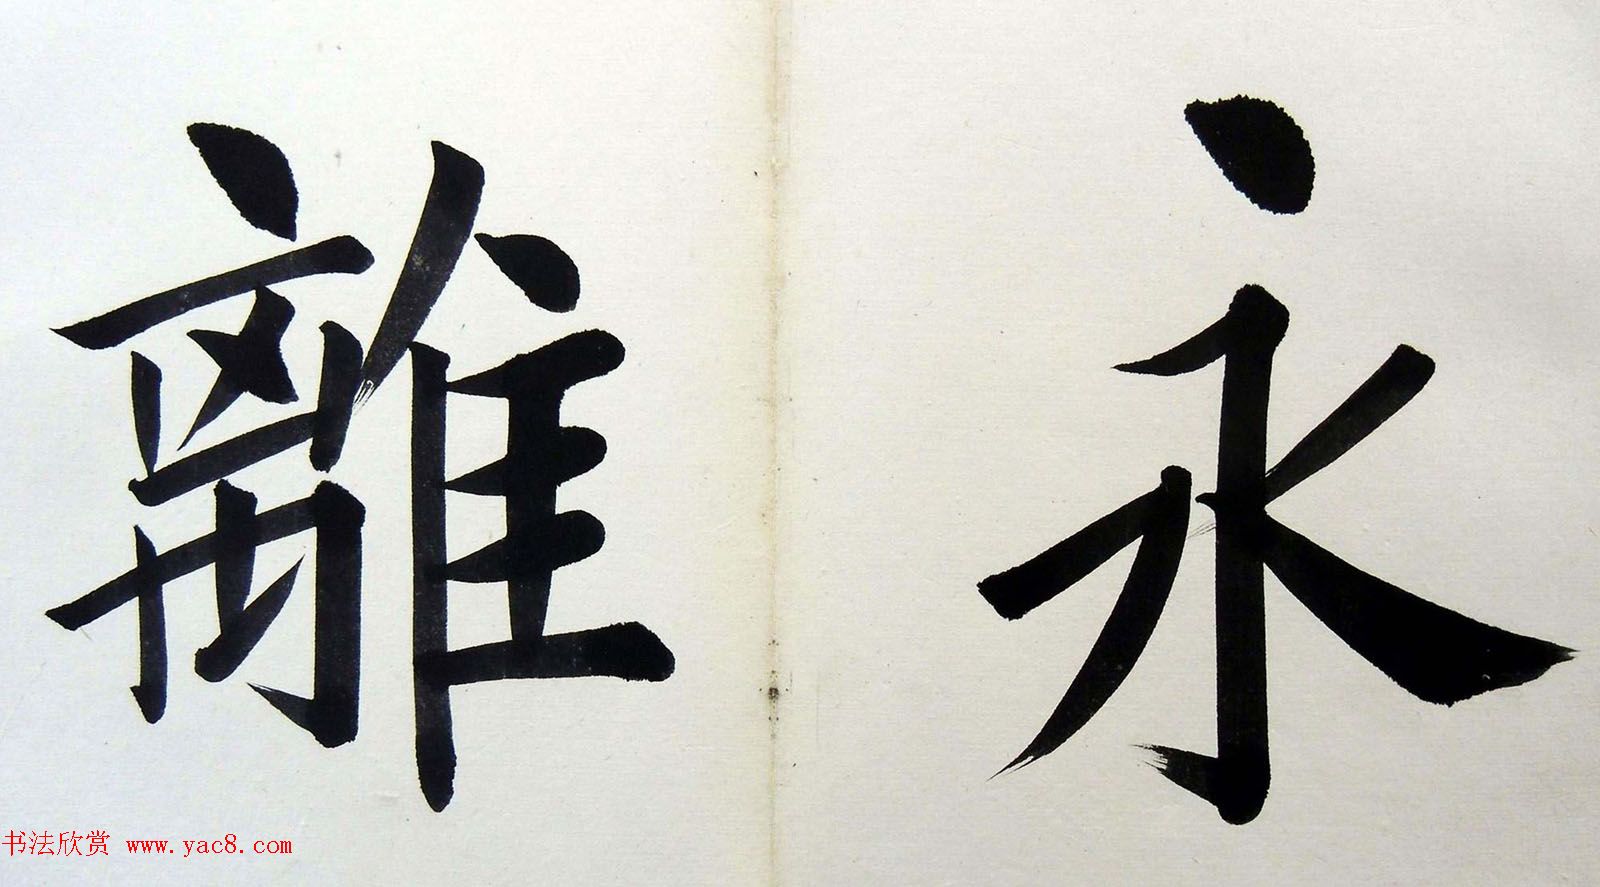 永
離
书法欣赏 www.yac8.com